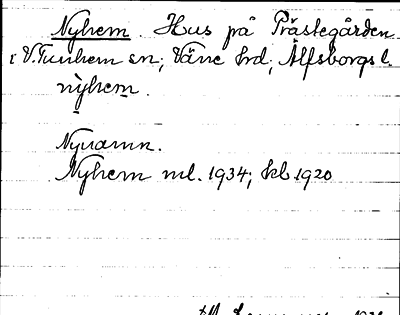 Nyhem. Hus på Prästegården
i V. Tunhem sn; Väne hd; Älfsborgs l.
nỳhem.
Nynamn.
Nyhem ml. 1934; kl 1920